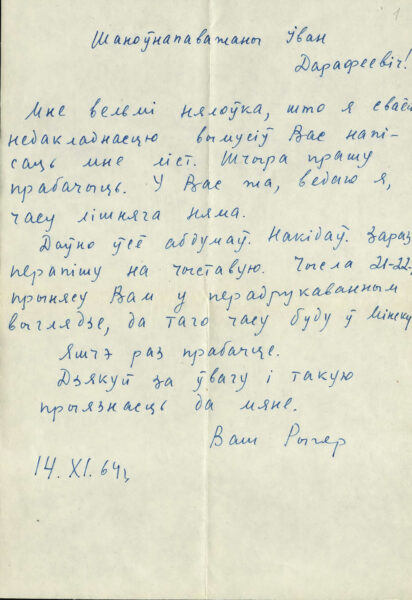 1
Шаноўнапаважаны Іван
Дарафеевіч!
Мне вельмі нялоўка, што я сваёй
недакладнасцю вымусіў Вас напі-
саць мне ліст. Шчыра прашу
прабачыць. У Вас жа, ведаю я,
часу лішняга няма.
Даўно ўсё абдумаў. Накідаў. Зараз
перапішу на чыставую. Чысла 21-22,
прынясу Вам у перадрукаванным
выглядзе, да таго часу буду ў Мінску
Яшчэ раз прабачце.
Дзякуй за ўвагу і такую
прыязнасць да мяне.
Ваш Рыгер
14. XI. 64 г.